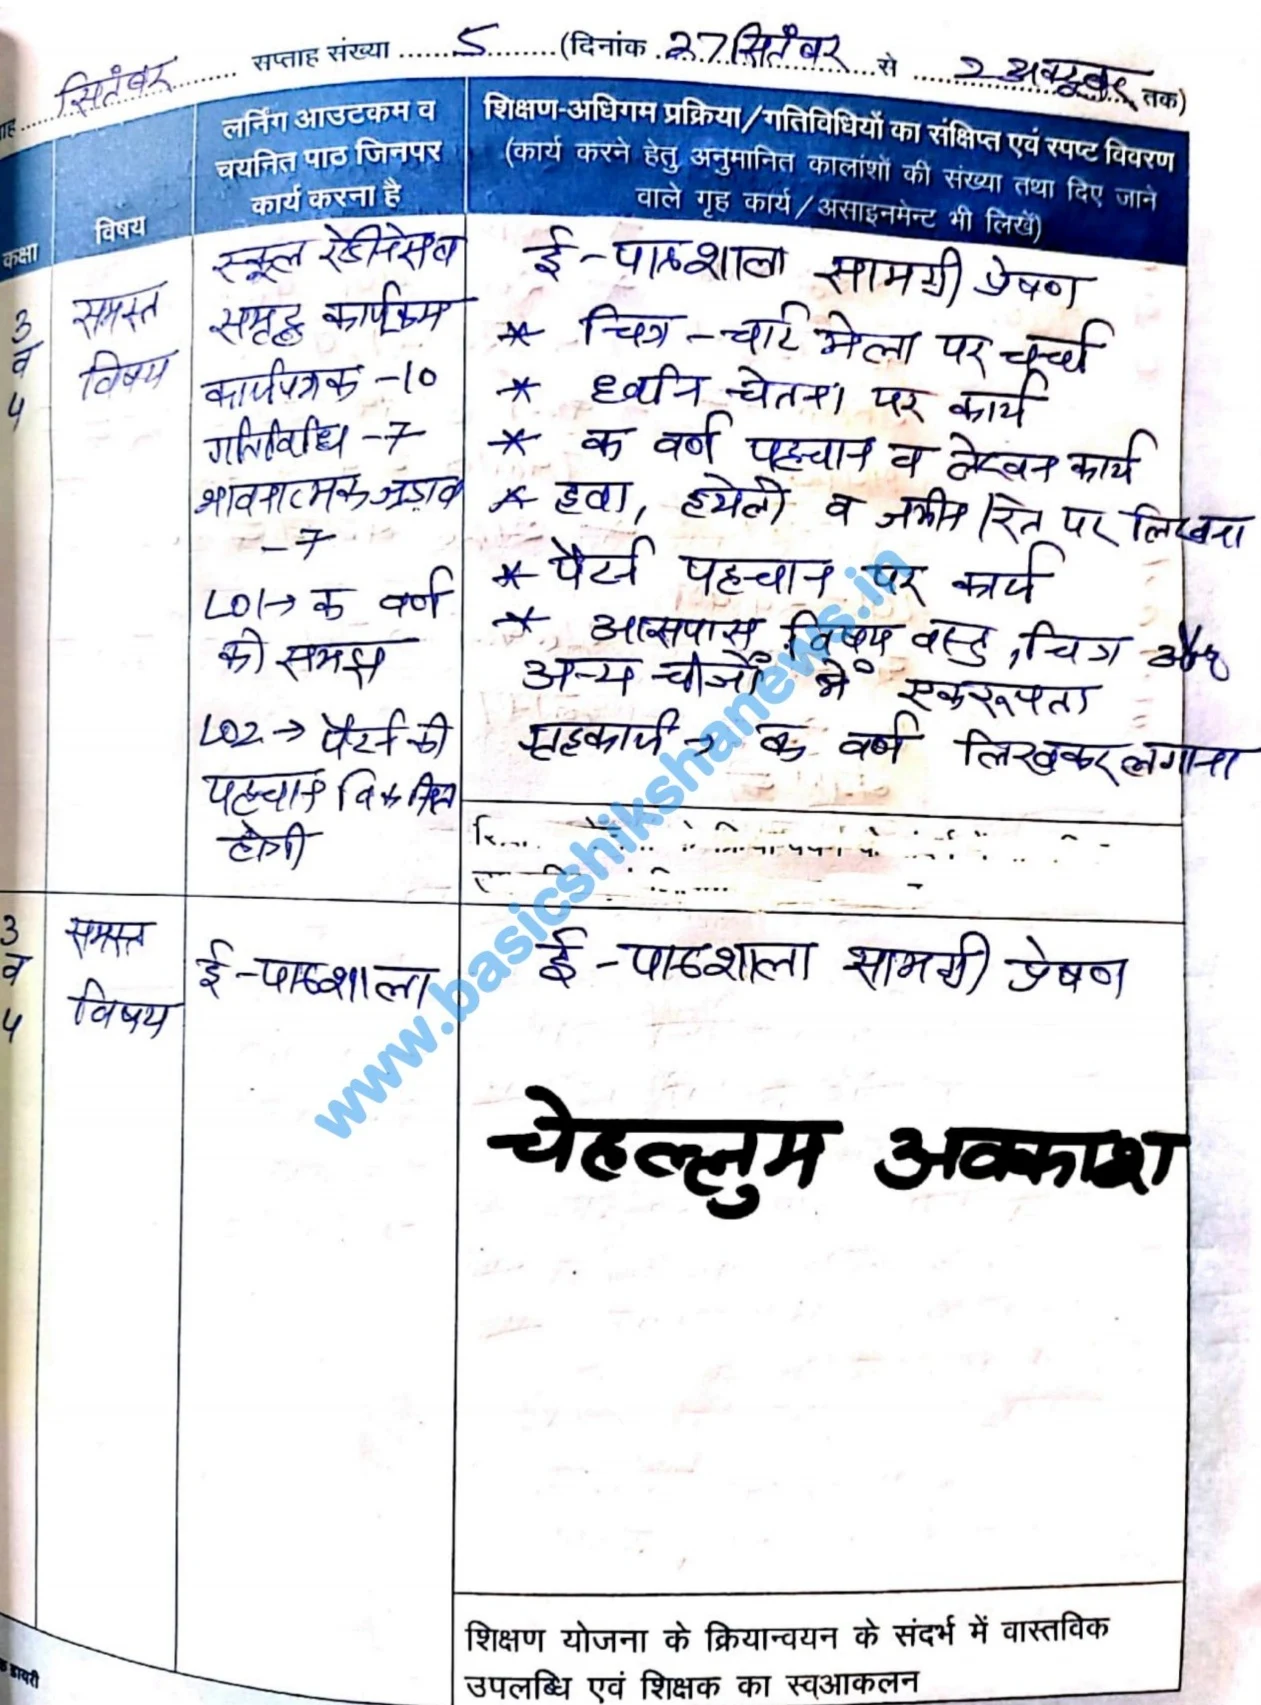 सितंबर सप्ताह संख्या 5 (दिनांक 27 सितंबर से 2 अक्टूबर तक)
कक्षा
विषय
लर्निंग आउटकम व
चयनित पाठ जिनपर
कार्य करना है
शिक्षण-अधिगम प्रक्रिया/गतिविधियों का संक्षिप्त एवं स्पष्ट विवरण
(कार्य करने हेतु अनुमानित कालांशों की संख्या तथा दिए जाने
वाले गृह कार्य/असाइनमेंट भी लिखें)
3
व
4
समस्त
विषय
स्कूल रेडीनेस व
समृद्ध कार्यक्रम
कार्यपत्रक -10
गतिविधि -7
भावनात्मक जुड़ाव
-7
LO1→ क वर्ण
की समझ
LO2→ पैटर्न की
पहचान विकसित
होगी
ई-पाठशाला सामग्री प्रेषण
* चित्र-चार्ट मेला पर चर्चा
* ध्वनि चेतना पर कार्य
* क वर्ण पहचान व लेखन कार्य
* हवा, हथेली व जमीन/रेत पर लिखना
* पैटर्न पहचान पर कार्य
* आसपास, विषय वस्तु, चित्र और
अन्य चीजों में एकरूपता
गृहकार्य→ क वर्ण लिखकर लगाना
3
व
4
समस्त
विषय
ई-पाठशाला
ई-पाठशाला सामग्री प्रेषण
चेहल्लुम अवकाश
शिक्षण योजना के क्रियान्वयन के संदर्भ में वास्तविक
उपलब्धि एवं शिक्षक का स्वआकलन
डायरी
www.basicshikshanews.in